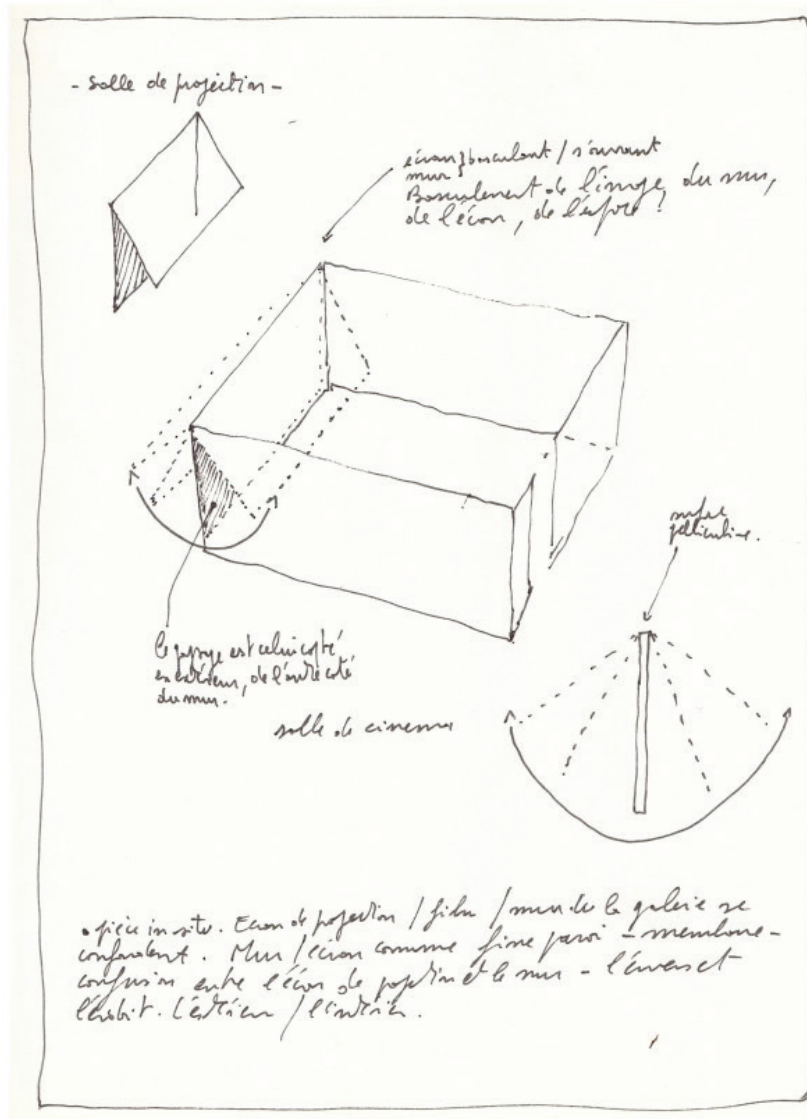 - salle de projection -
écran } basculant / s'ouvrant
mur
Basculement de l'image, du mur,
de l'écran, de l'espace ?
surface
pelliculaire.
le paysage est celui capté
en extérieur, de l'autre côté
du mur.
salle de cinema
• pièce in situ. Ecran de projection / film / mur de la galerie se
confondent. Mur / écran comme fine paroi - membrane -
confusion entre l'écran de projection et le mur - l'envers et
l'endroit. L'extérieur / l'intérieur.